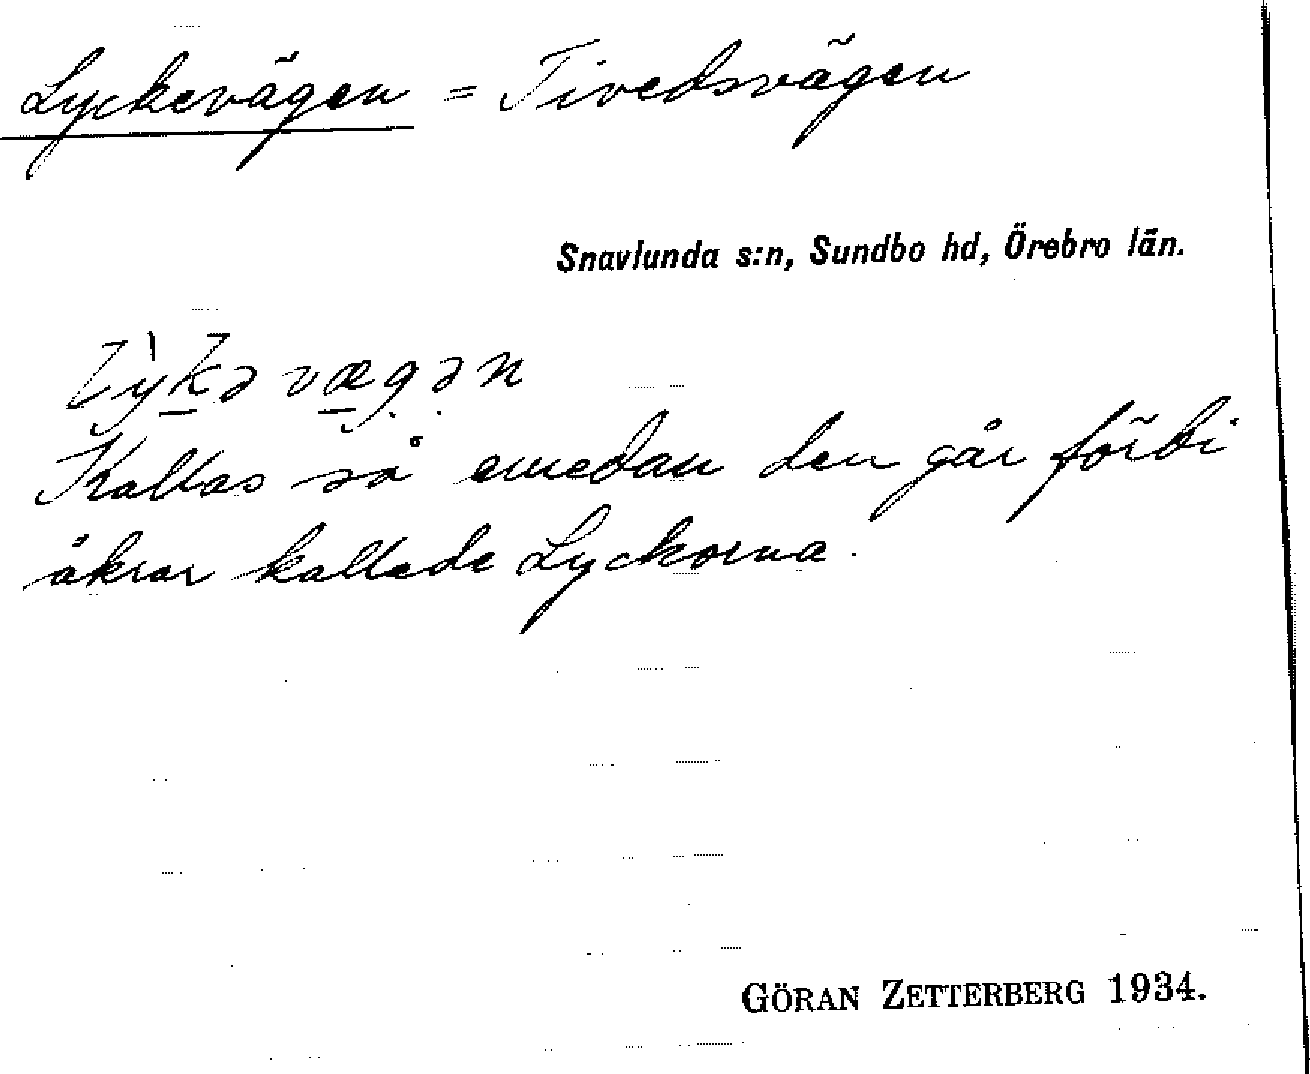 Lyckevägen = Tivedsvägen
Snavlunda s:n, Sundbo hd, Örebro län.
lỳkəvægən
Kallas så emedan den går förbi
åkrar kallade Lyckorna.
GÖRAN ZETTERBERG 1934.